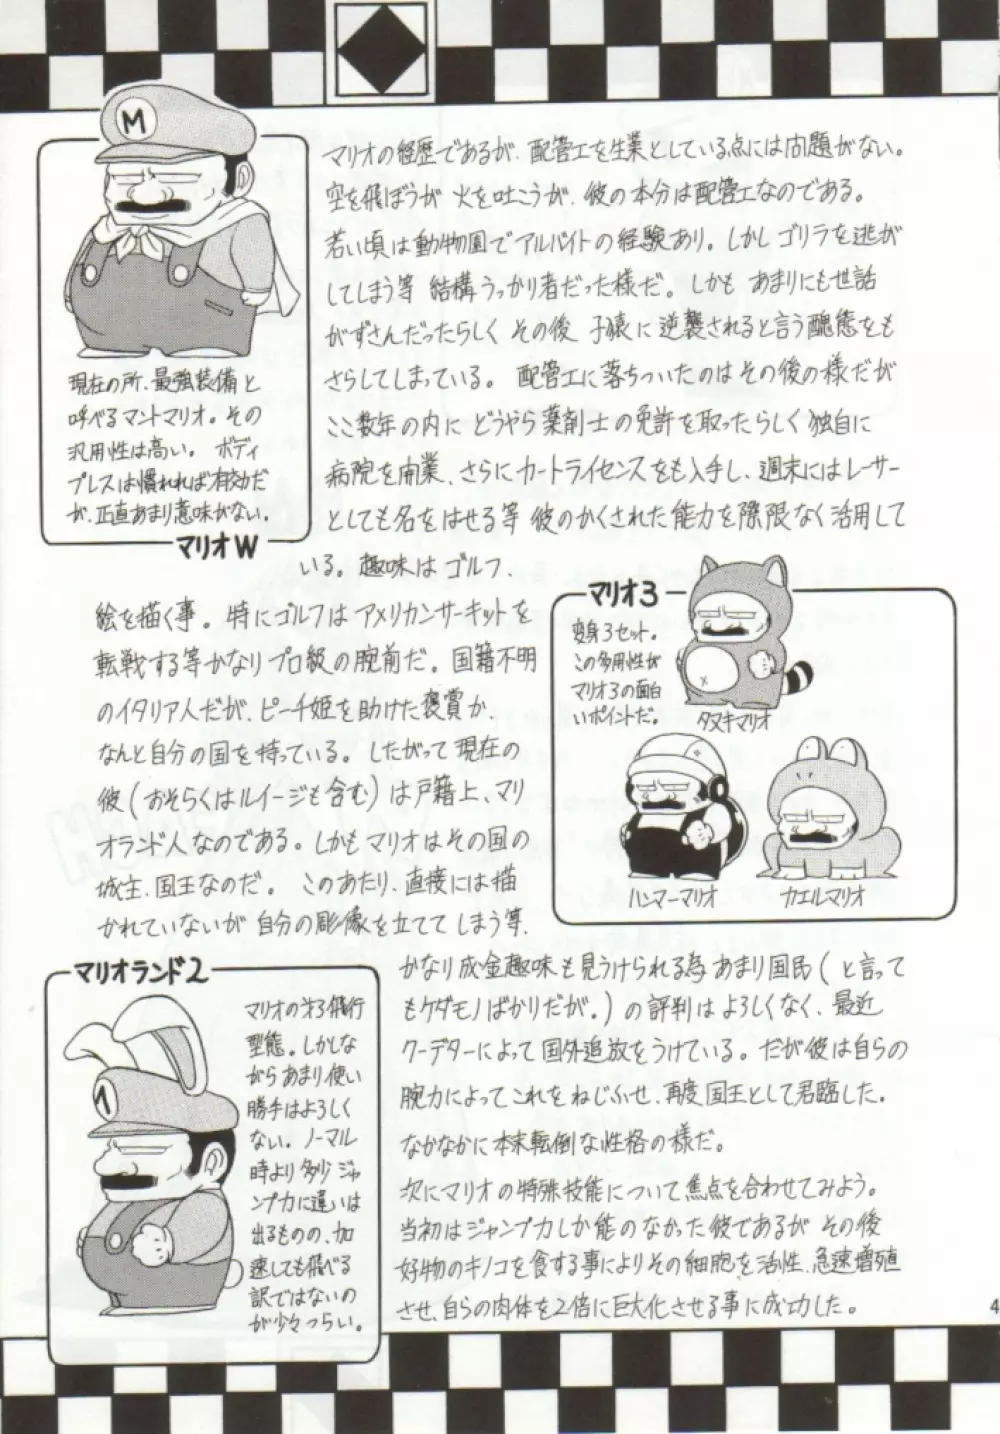 M
マリオの経歴であるが、配管工を生業としている点には問題がない。
空を飛ぼうが 火を吐こうが、彼の本分は配管工なのである。
若い頃は動物園でアルバイトの経験あり。しかしゴリラを逃が
してしまう等 結構うっかり者だった様だ。しかも あまりにも世話
がずさんだったらしく その後 子猿に逆襲されると言う醜態をも
さらしてしまっている。 配管工に落ちついたのはその後の様だが
ここ数年の内に どうやら薬剤士の免許を取ったらしく独自に
病院を開業、さらにカートライセンスをも入手し、週末にはレーサー
としても名をはせる等 彼のかくされた能力を際限なく活用して
いる。趣味はゴルフ、
絵を描く事。特にゴルフはアメリカンサーキットを
転戦する等かなりプロ級の腕前だ。国籍不明
のイタリア人だが、ピーチ姫を助けた褒賞か、
なんと自分の国を持っている。したがって現在の
彼(おそらくはルイージも含む)は戸籍上、マリ
オランド人なのである。しかもマリオはその国の
城主、国王なのだ。 このあたり、直接には描
かれていないが 自分の彫像を立ててしまう等、
かなり成金趣味も見うけられる為あまり国民(と言って
もケダモノばかりだが。)の評判はよろしくなく、最近
クーデターによって国外追放をうけている。だが彼は自らの
腕力によってこれをねじふせ、再度国王として君臨した。
なかなかに本末転倒な性格の様だ。
次にマリオの特殊技能について焦点を合わせてみよう。
当初はジャンプ力しか能のなかった彼であるが その後
好物のキノコを食する事によりその細胞を活性、急速増殖
させ、自らの肉体を2倍に巨大化させる事に成功した。
現在の所、最強装備と
呼べるマントマリオ。その
汎用性は高い。 ボディ
プレスは慣れれば有効だ
が、正直あまり意味がない。
マリオW
マリオ3
変身3セット。
この多用性が
マリオ3の面白
いポイントだ。
タヌキマリオ
ハンマーマリオ
カエルマリオ
マリオランド2
マリオの才3飛行
型態。しかしな
がらあまり使い
勝手はよろしく
ない。ノーマル
時より多少ジャ
ンプ力に違いは
出るものの、加
速しても飛べる
訳ではないの
が少々つらい。
4